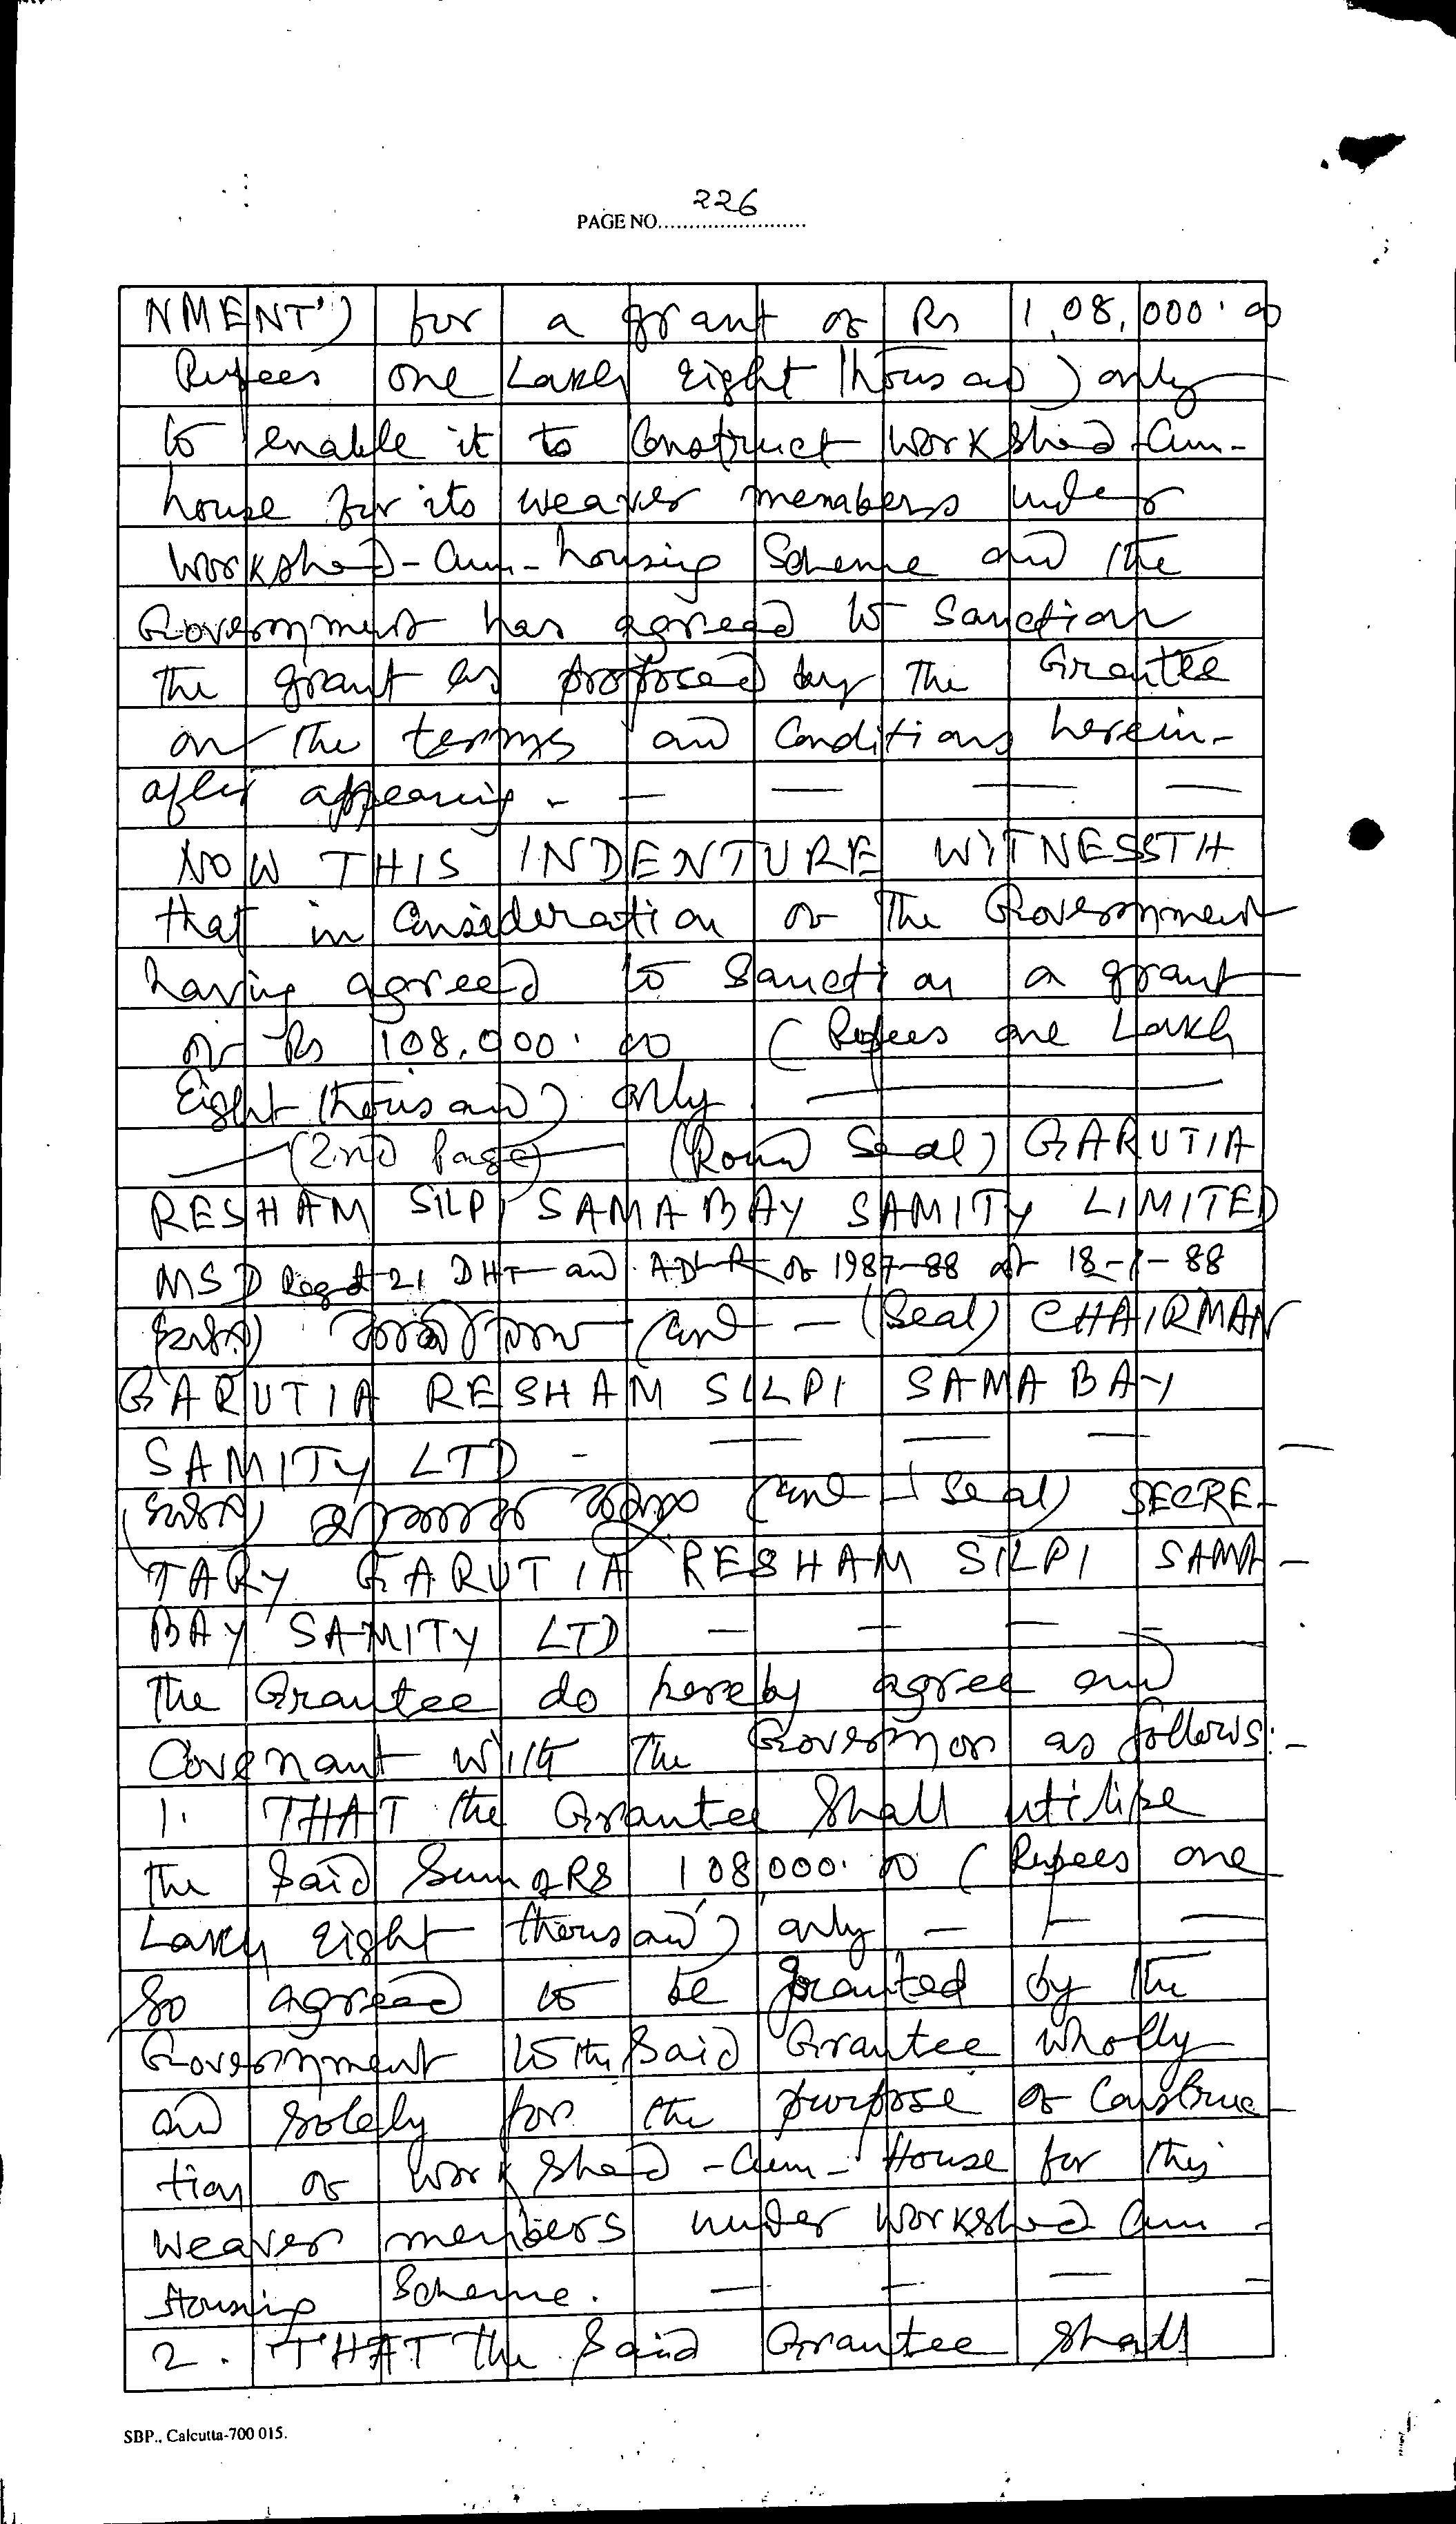 226
PAGE NO.........................
NMENT') for a grant of Rs 1,08,000.00
Rupees one Lakh eight thousand) only
to enable it to Construct Workshed-Cum-
house for its weaver members under
Workshed-Cum-housing Scheme and the
Government has agreed to Sanction
the grant as proposed by the Grantee
on the terms and Conditions herein-
after appearing. - — — — —
NOW THIS INDENTURE WITNESSTH
that in Consideration of the Government
having agreed to Sanction a grant
of Rs 108,000.00 (Rupees one Lakh
Eight thousand) only. ———
— (2nd Page) — (Round Seal) GARUTIA
RESHAM SILPI SAMABAY SAMITY LIMITED
MSD Regd 21 DHT and of 1987-88 of 18-1-88
(স্বাক্ষর) (and — (Seal) CHAIRMAN
GARUTIA RESHAM SILPI SAMABAY
SAMITY LTD - — — — —
(স্বাক্ষর) (and - Seal) SECRE-
TARY GARUTIA RESHAM SILPI SAMA-
BAY SAMITY LTD — — — -
The Grantee do hereby agree and
Covenant with the Governor as follows: -
1. THAT the Grantee Shall utilise
the Said Sum of RS 108,000.00 (Rupees one
Lakh eight thousand) only — — —
So agreed to be granted by the
Government to the Said Grantee wholly
and solely for the purpose of Construc-
tion of work shed-Cum-House for this
weaver members under Workshed Cum -
Housing Scheme. — - — -
2. THAT the Said Grantee Shall
SBP., Calcutta-700 015.